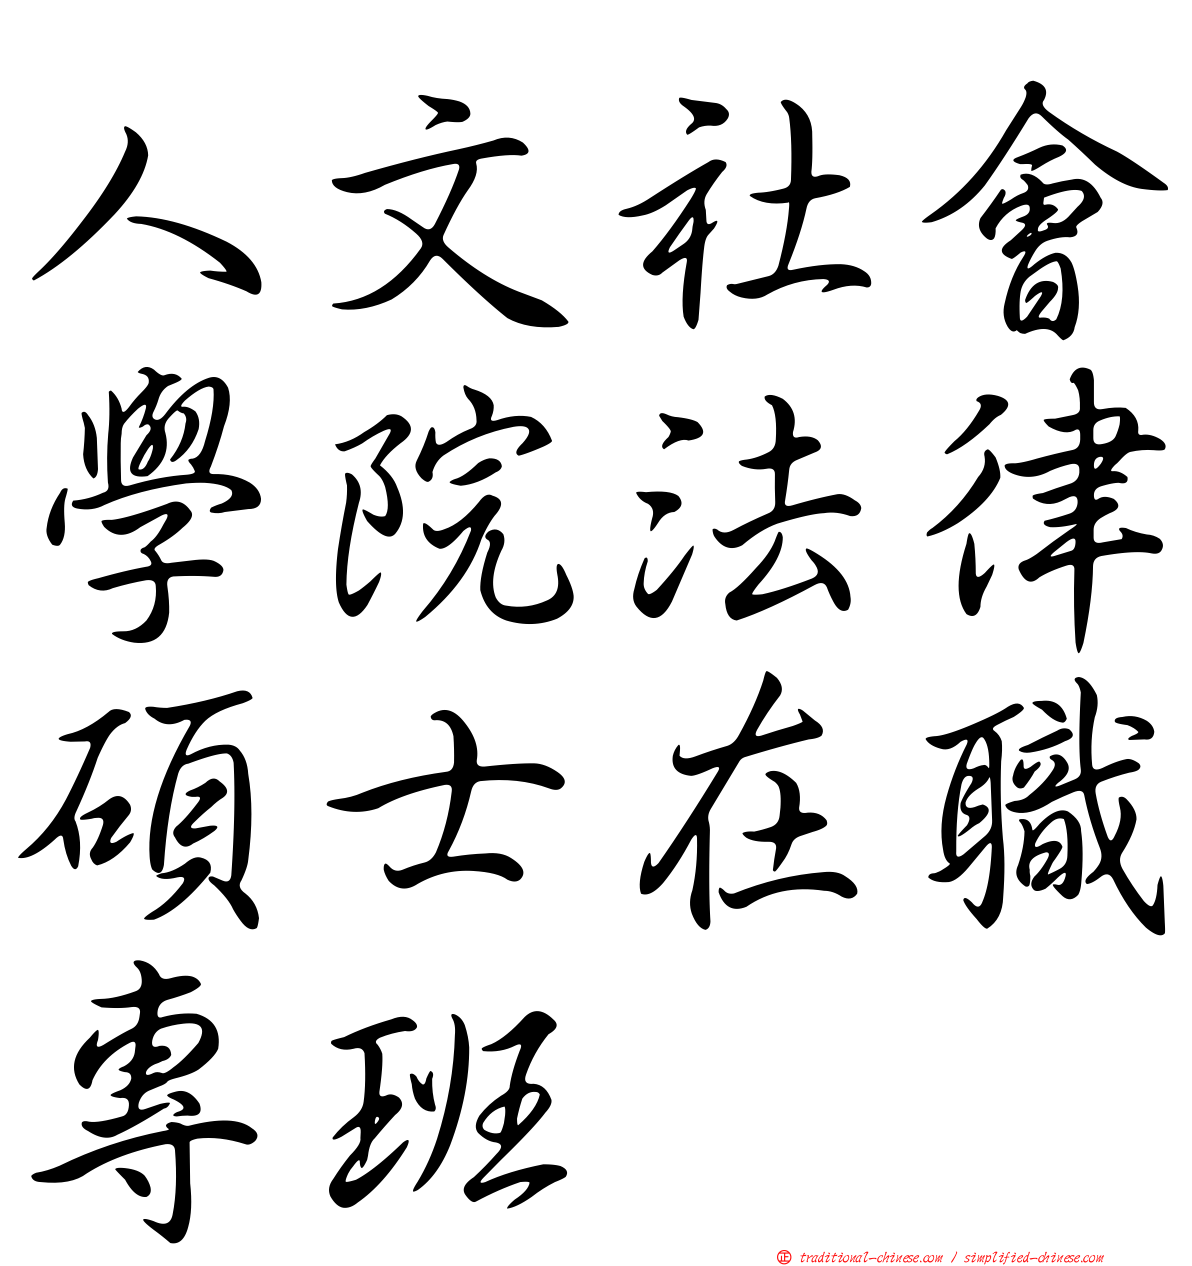 人文社會
學院法律
碩士在職
專班
正 traditional-chinese.com / simplified-chinese.com